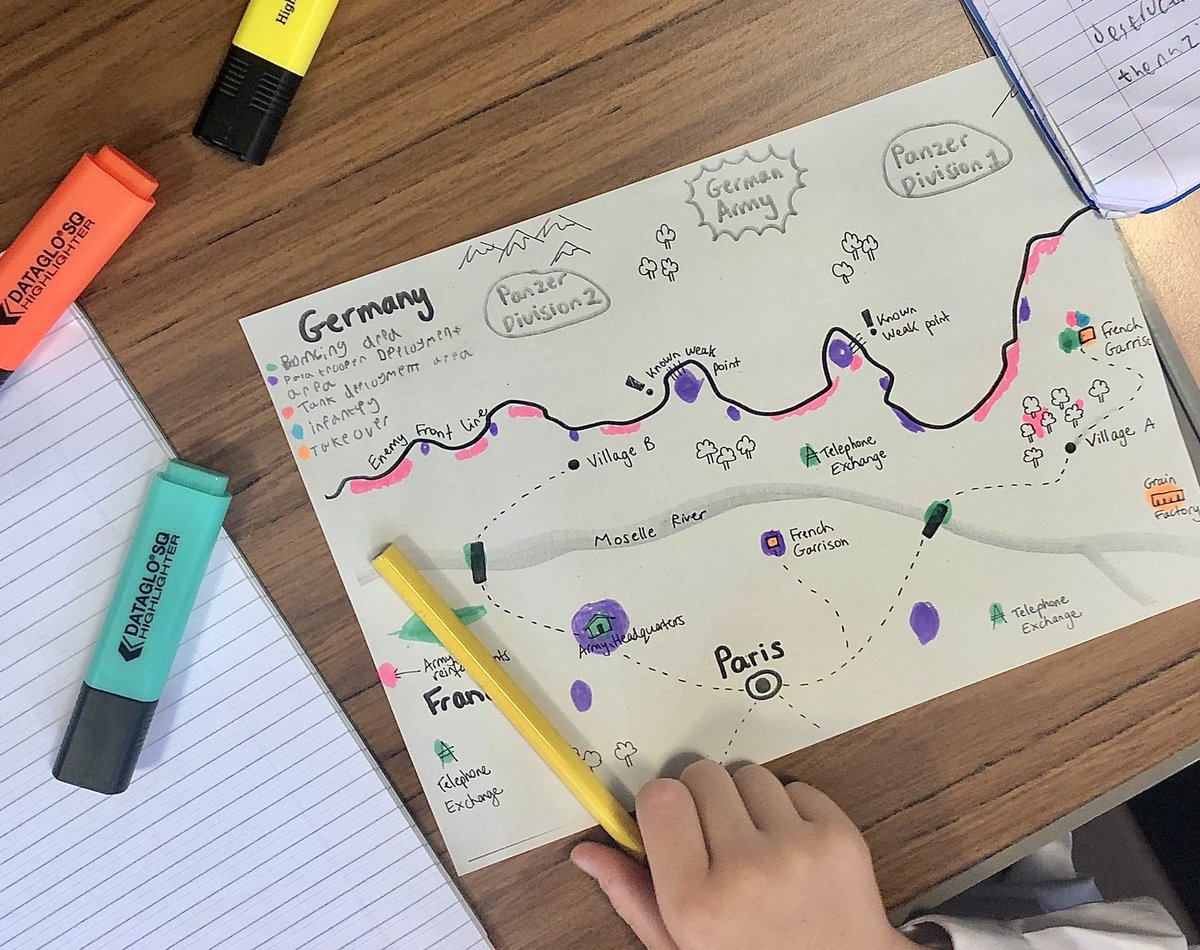 High
DATAGLO®SQ
HIGHLIGHTER
DATAGLO®SQ
HIGHLIGHTER
then
German
Army
Panzer
Division 1
Panzer
Division 2
Germany
Bombing area
Paratrooper Deployment
area
Tank deployment area
infantry
Takeover
Enemy Front Line
Known weak
point
Known
weak point
French
Garriso
Village B
Telephone
Exchange
Village A
Grain
Factory
Moselle River
French
Garrison
Army Headquarters
Telephone
Exchange
Paris
Army
Fran
Telephone
Exchange